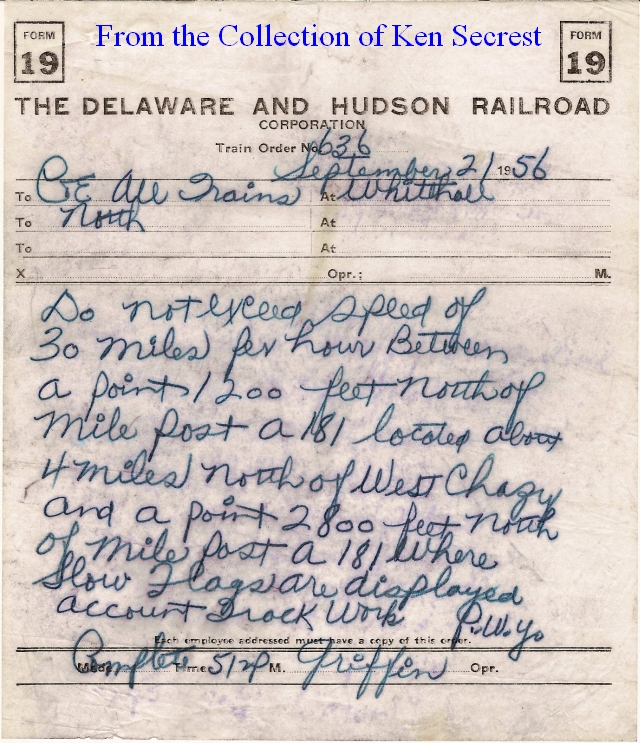 From the Collection of Ken Secrest
FORM
19
FORM
19
THE DELAWARE AND HUDSON RAILROAD
CORPORATION
Train Order No. 636
September 21 1956
To C&E All Trains At Whitehall
To North At
To At
X Opr.; M.
Do not exceed speed of
30 miles per hour Between
a point 1200 feet North of
Mile Post A 181 located about
4 miles North of West Chazy
and a point 2800 feet North
of Mile Post A 181 Where
Slow Flags are displayed
account Track Work
Each employee addressed must have a copy of this order.
Made Complete Time 512 P M. Griffin Opr.